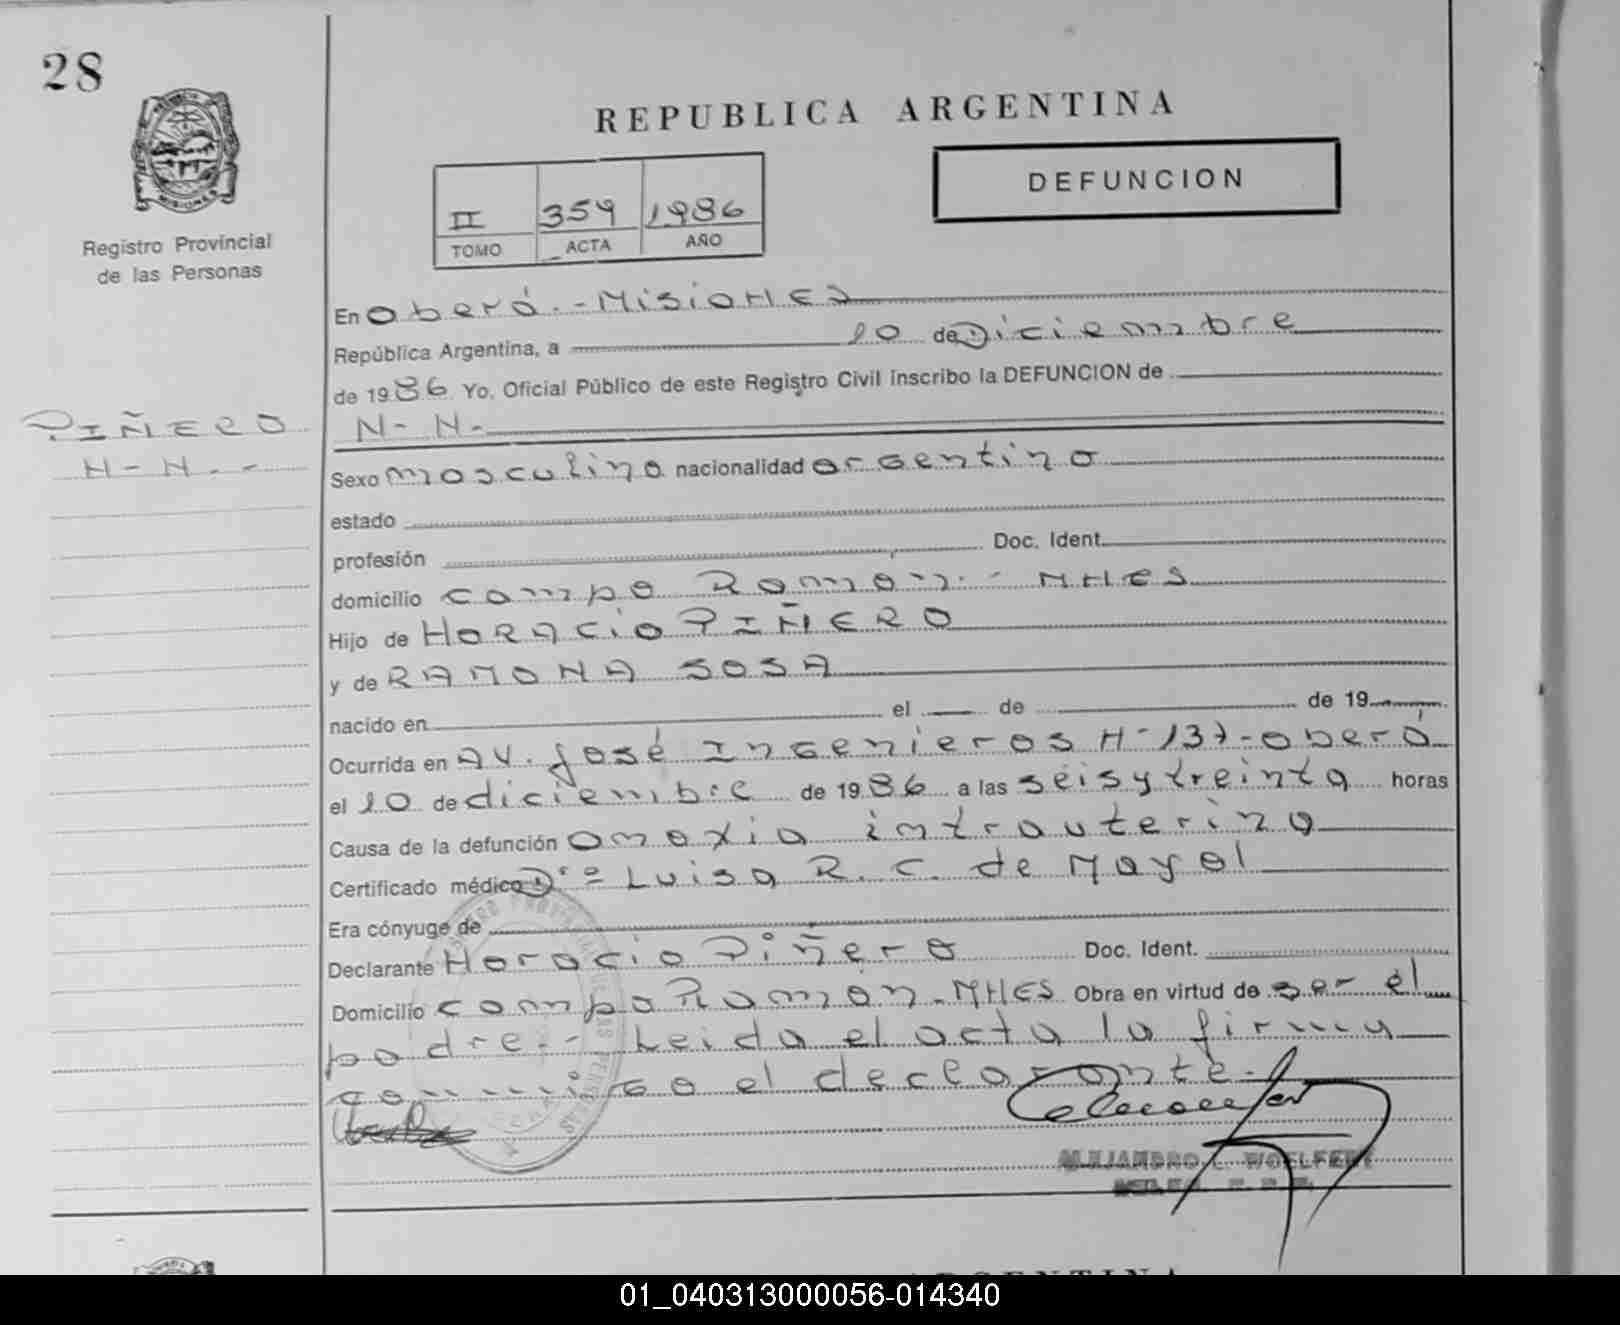 28
REPUBLICA ARGENTINA
DEFUNCION
II 359 1986
TOMO ACTA AÑO
MISIONES
Registro Provincial
de las Personas
PIÑERO
N-N.-
En Oberá.-Misiones
República Argentina, a 10 de Diciembre
de 1986 Yo, Oficial Público de este Registro Civil inscribo la DEFUNCION de
N-N.
Sexo masculino nacionalidad argentino
estado
profesión Doc. Ident.
domicilio campo Ramon.- MNES
Hijo de HORACIO PIÑERO
y de RAMONA SOSA
nacido en el de de 19
Ocurrida en AV. José Ingenieros N-137-oberá
el 10 de diciembre de 1986 a las seis y treinta horas
Causa de la defunción anoxia intrauterina
Certificado médico Drª Luisa R. C. de Mayol
Era cónyuge de
Declarante Horacio Piñero Doc. Ident.
Domicilio campo Ramón.MNES Obra en virtud de ser el
padre.- Leida el acta la firma
conmigo el declarante.-
ALEJANDRO L. WOELFERT
ARGENTINA
01_040313000056-014340